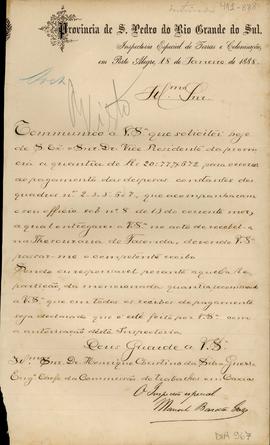 Provincia de S. Pedro do Rio Grande do Sul.
Inspectoria Especial de Terras e Colonisação,
em Porto Alegre, 18 de Janeiro de 1888.
Visto
Illmo Snr.
Communico a V. Sa que solicitei hoje
de S. Exa o Snr. Dr. Vice Presidente da provin
cia a quantia de Rs 20:777$672 para occorrer
ao pagamento das despezas constantes dos
quadros nos 2, 3, 3, 5 e 7, que acompanharam
o seu officio sob no 8 de 13 do corrente mez,
a qual entregarei a V. Sa no acto de recebel-a
na Thesouraria de Fazenda, devendo V. Sa
passar-me o competente recibo
Sendo eu responsavel perante aquella Re
partição, da mencionada quantia, recommendo
a V. Sa que em todos os recibos de pagamento
seja declarado que este é feito por V. Sa com
a autorisação desta Inspectoria.
Deus Guarde a V. Sa
Illmo Snr. Dr. Henrique Christino da Silva Guerra
Engo Chefe da Commissão de trabalhos em Caxias
O Inspector especial
Manoel Barata Góes